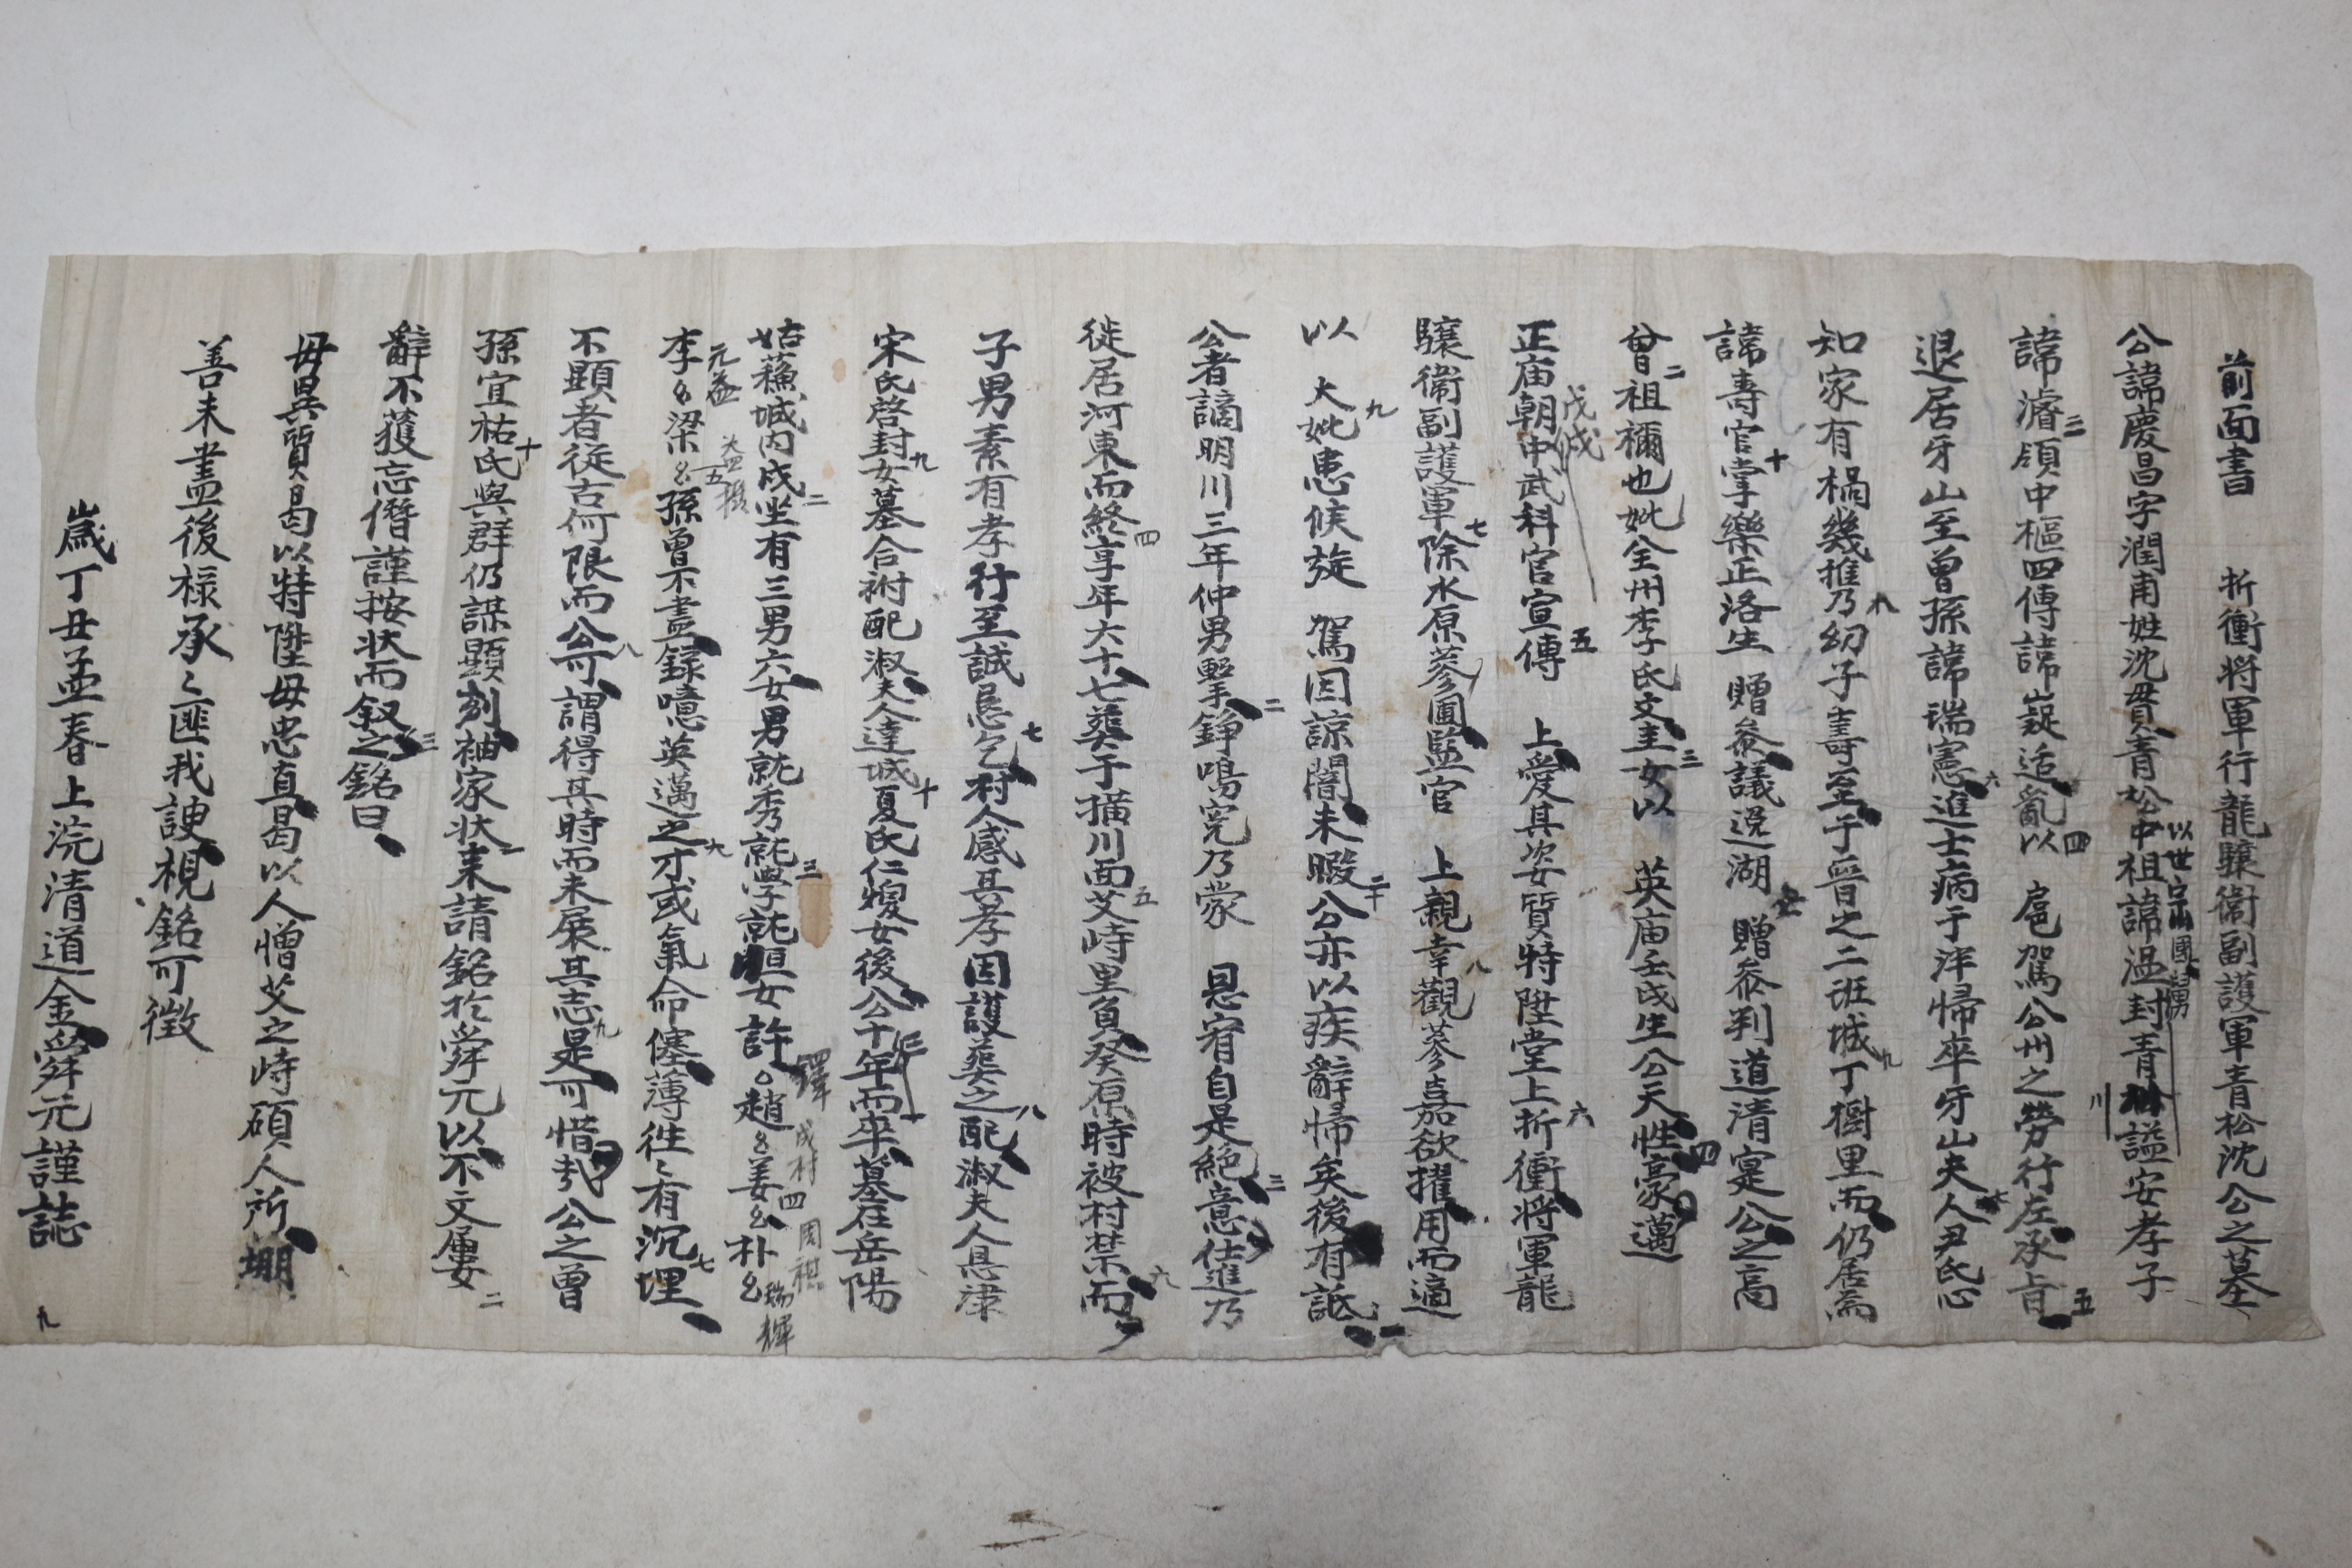 前面書 折衝将軍行龍驤衛副護軍青松沈公之墓
公諱慶昌字潤甫姓沈貫青松中祖諱温封青川謚安孝子
以世宗國舅
諱濬領中樞四傳諱嶷适亂以 扈駕公州之勞行左承旨
退居牙山至曾孫諱瑞憲進士病于泮帰卒牙山夫人尹氏心
知家有禍幾推乃幼子壽至于晉之二班城丁樹里而仍居焉
諱壽官掌樂正洛生 贈叅議逆湖 贈叅判道清寔公之高
曾祖禰也妣全州李氏文圭女以 英庙壬戌生公天性豪邁
正庙朝中武科官宣傳 上愛其姿質特陞堂上折衝将軍龍
戊戌
驤衛副護軍除水原蔘圃監官 上親幸觀蔘嘉欲擢用而適
以 大妣患候旋 駕因諒闇未暇公亦以疾辭帰矣後有詆
公者謫明川三年仲男擊錚鳴寃乃蒙 恩宥自是絶意仕進乃
徙居河東而終享年六十七葬于横川面艾峙里負癸原時被村禁而
子男素有孝行至誠忌乞村人感其孝因護葬之配淑夫人恩津
宋氏啓封女墓合祔配淑夫人達城夏氏仁燰女後公十年而卒墓在岳陽
姑蘓城内戌坐有三男六女男就秀就學就恒女許 趙 姜 朴
鐸 成村 周祺 瑞輝
李 梁 孫曾不盡録噫英邁之才或氣命僿薄徃〻有沉埋
元益
不顯者從古何限而公可謂得其時而未展其志是可惜哉公之曾
孫宜祐氏與群仍謀顯刻袖家状来請銘於舜元以不文屢
辭不獲忘僭謹按状而叙之銘曰
毋異質曷以特陞毋忠直曷以人憎艾之峙碩人所堋
善未盡後禄承〻匪我諛視銘可徴
歳丁丑孟春上浣清道金舜元謹誌